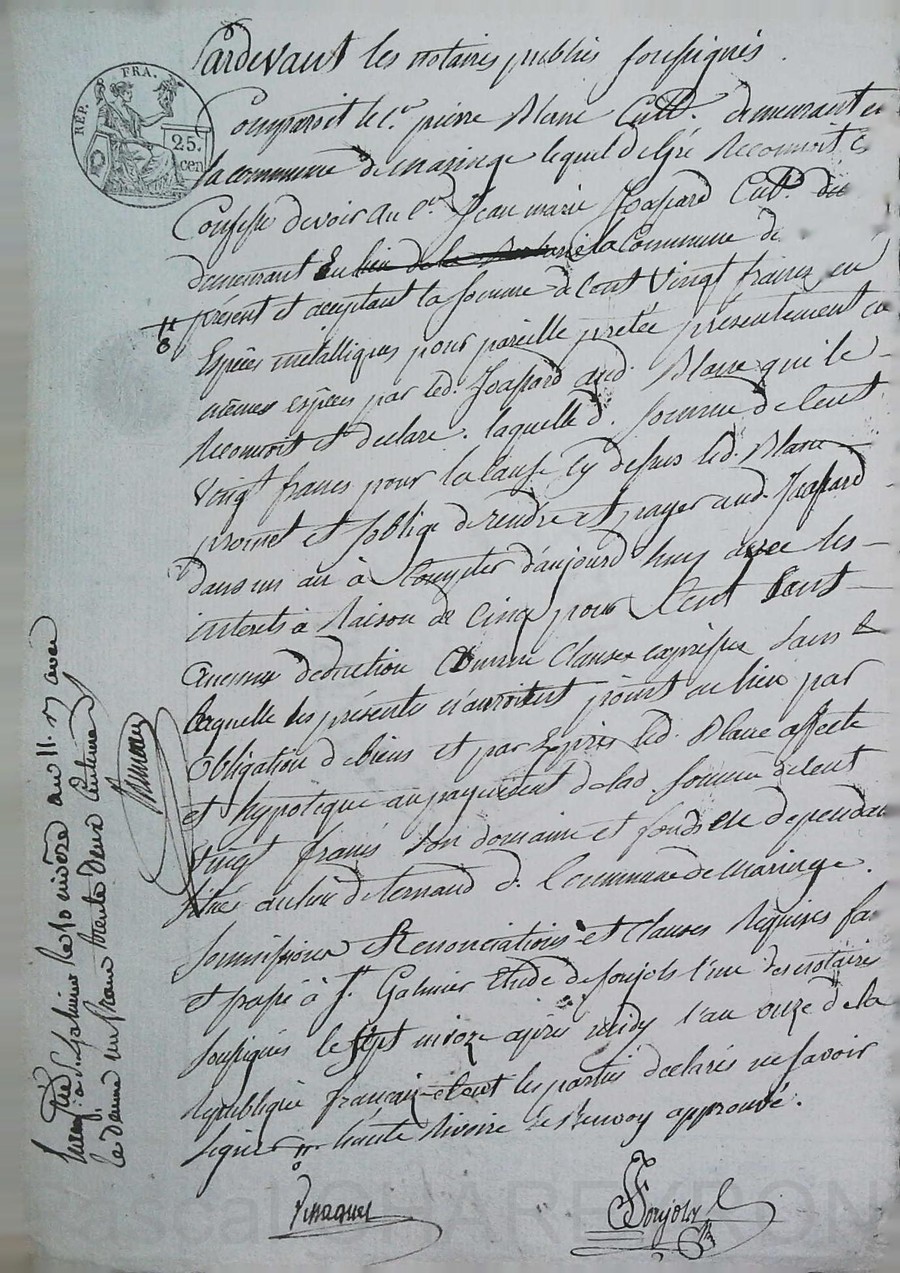 RÉP. FRA.
25. cen
Pardevant les notaires publics soussignés
Comparoit le C.en pierre Blanc Cult.r demeurant en
la commune de maringe lequel de gré Reconnoit &
Confesse devoir au C.en Jean marie Joassard Cult.r
demeurant En la Commune de
présent et acceptant la somme de Cent Vingt francs en
Espèces métalliques pour pareille pretée présentement en
mêmes espèces par led. Joassard aud. Blanc qui le
Reconnoit et declare. laquelle d. somme de Cent
Vingt francs pour la Cause Cy dessus led. Blanc
promet et soblige de rendre et payer aud. Joassard
dans un an à Compter d'aujourd'huy avec les
interets à Raison de Cinq pour Cent sans
Aucune deduction Comme Clause expresse sans
laquelle les présentes n'auroient point eu lieu par
Obligation de biens et par Exprès led. Blanc affecte
et hypoteque au payement de lad. somme de Cent
Vingt francs son domaine et fonds en dependant
situés au lieu de d. Commune de maringe.
soumissions Renonciations et Clauses Requises fa.
et passé à S.t Galmier Etude de Soujols l'un des notaires
soussignés le sept nivoze après midy l'an onze de la
République française et ont les parties declarés ne savoir
signer haute Rivoire Le Renvoy approuvé.
Soujols
Enregistré à S. Galmier le 10 nivôse an 11. avec
le dixme un franc trente deux Centimes